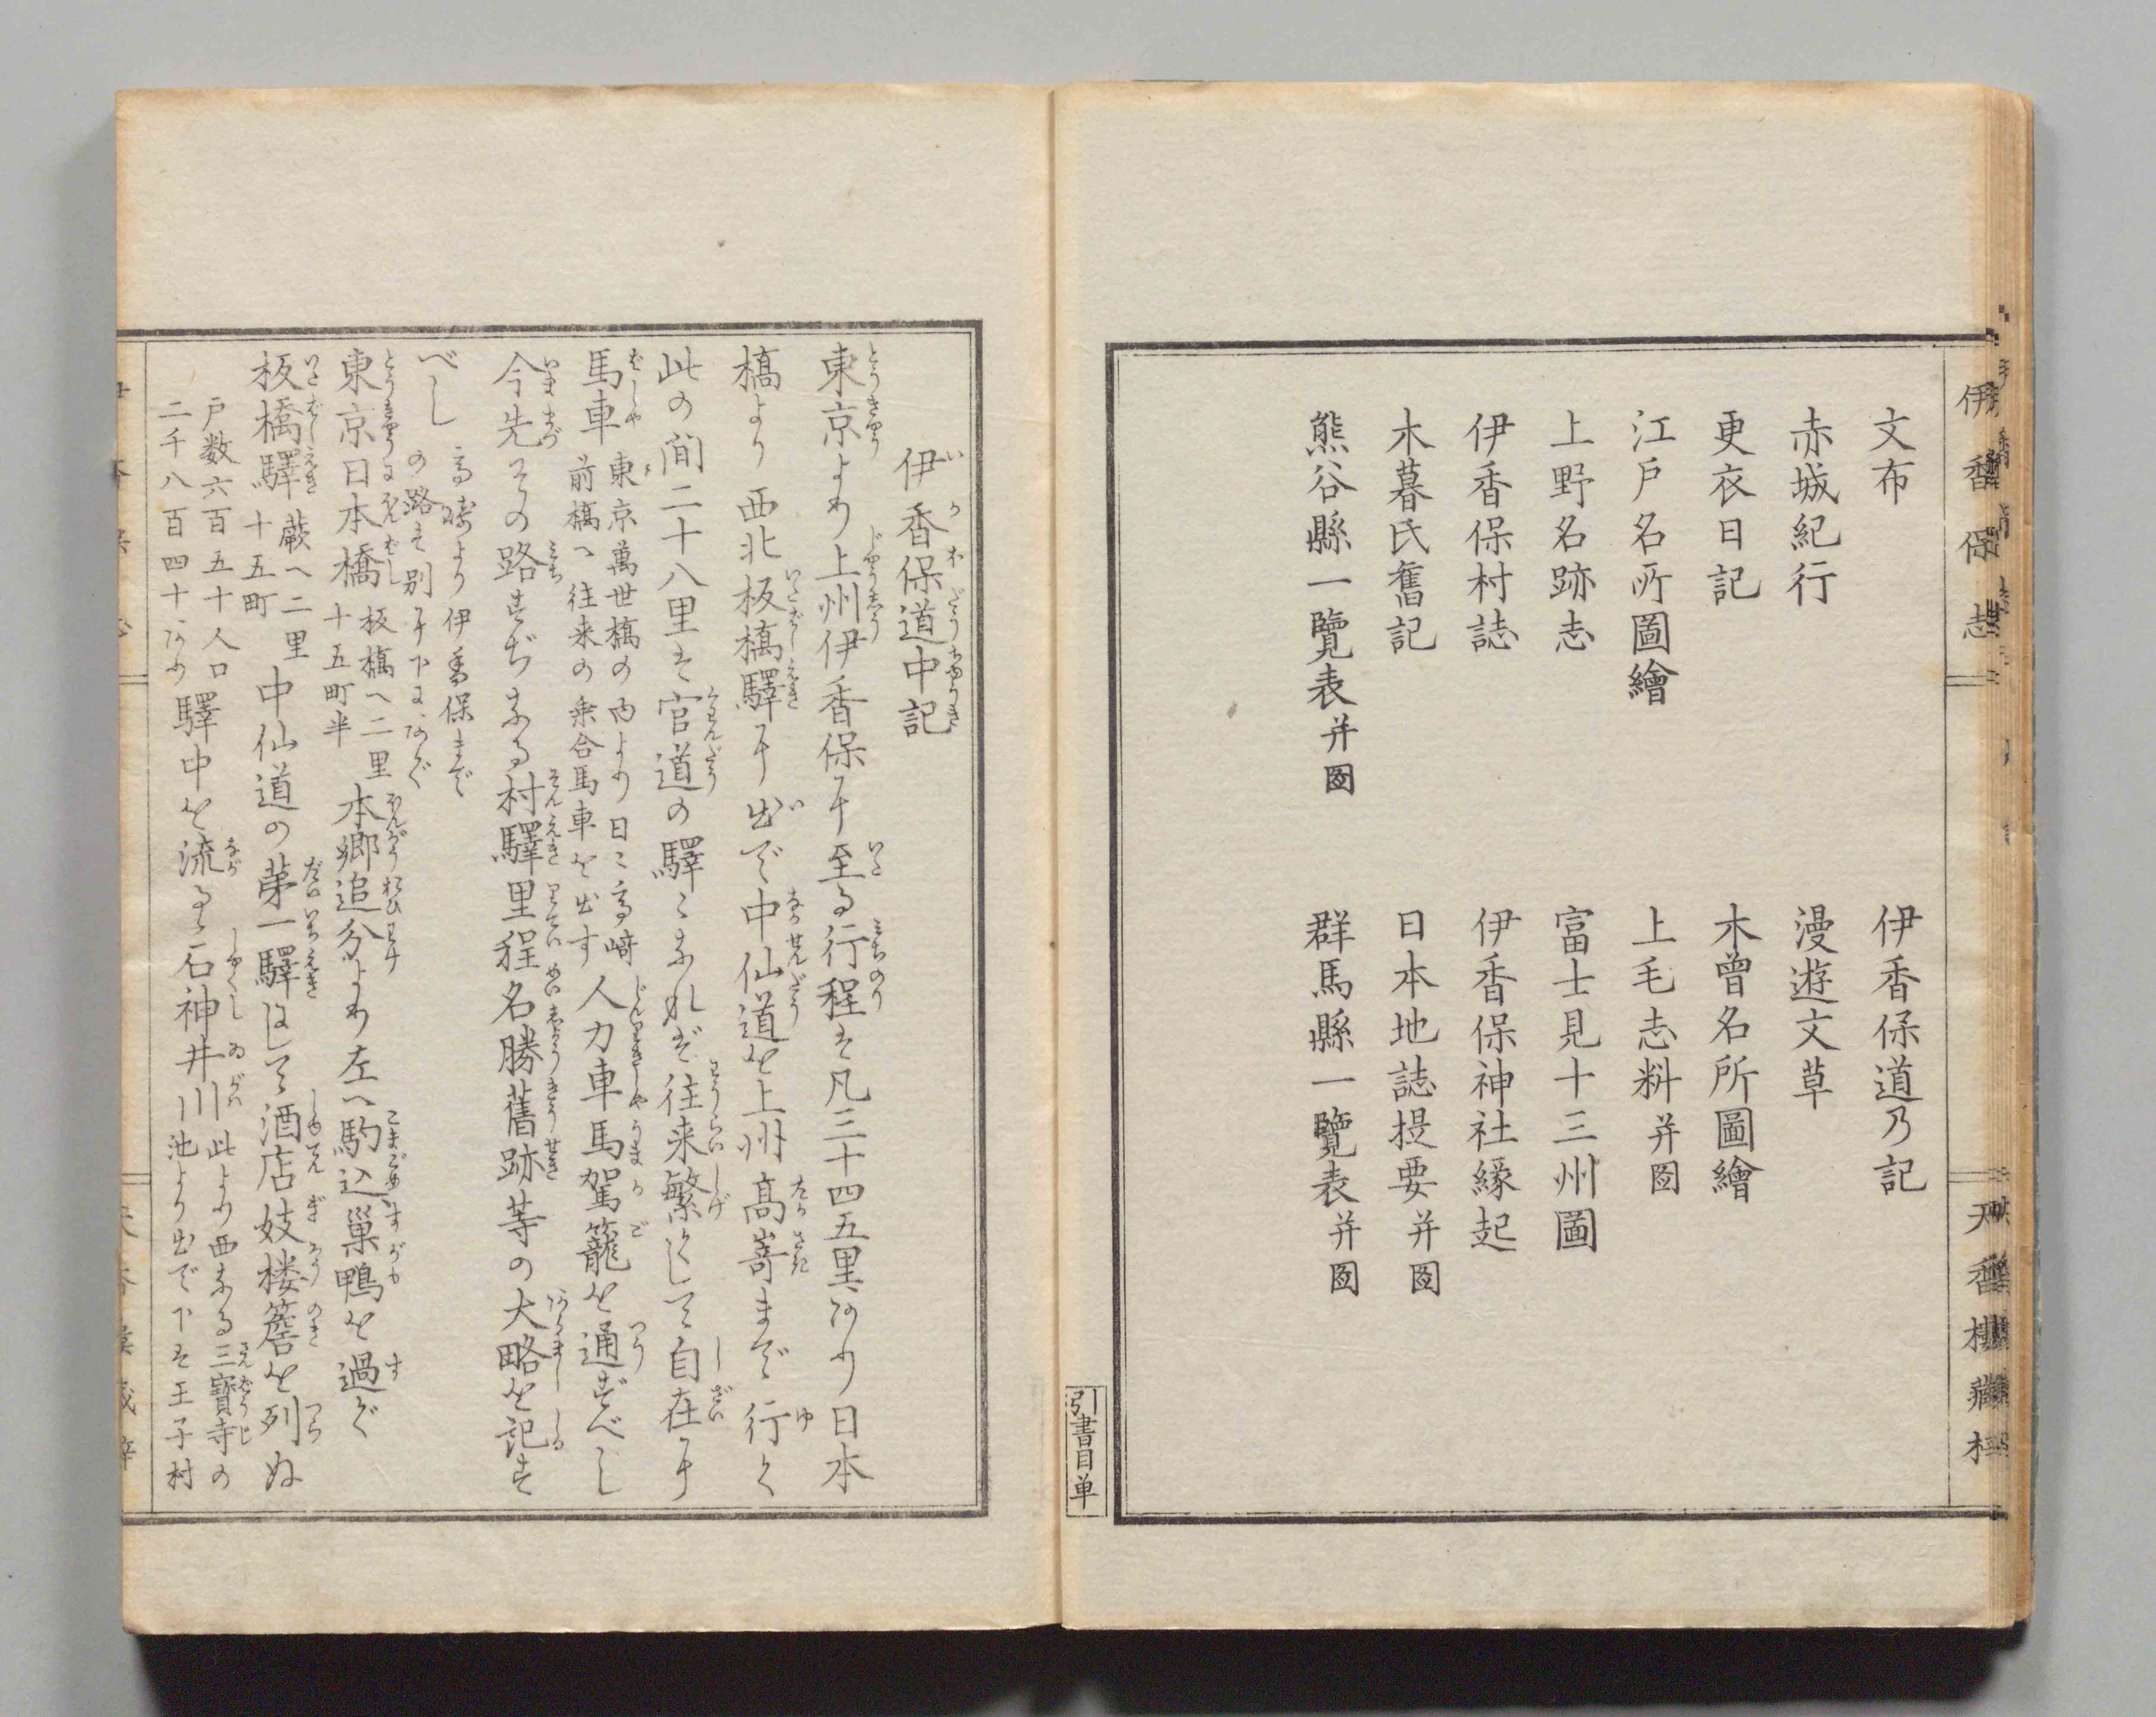 伊香保志
天香樓藏梓
文布
伊香保道乃記
赤城紀行
漫遊文草
更衣日記
木曾名所圖繪
江戸名所圖繪
上毛志料并圖
上野名跡志
富士見十三州圖
伊香保村誌
伊香保神社縁起
木暮氏舊記
日本地誌提要并圖
熊谷縣一覽表并圖
群馬縣一覽表并圖
引書目单
伊香保道中記
東京より上州伊香保に至る行程は凡三十四五里あり日本
橋より西北板橋驛に出で中仙道を上州髙嵜まで行く
此の間二十八里は官道の驛〻なれば往来繁くして自在に
馬車 東京萬世橋の内より日〻髙﨑前橋へ往来の乗合馬車を出す 人力車馬駕籠を通ずべし
今先その路すぢなる村驛里程名勝舊跡等の大略を記す
べし 髙﨑より伊香保までの路は別に下にあぐ
東京日本橋 板橋へ二里十五町半 本郷追分より左へ駒込巣鴨を過ぐ
板橋驛 蕨へ二里十五町 中仙道の第一驛にして酒店妓楼簷を列ぬ
戸数六百五十人口二千八百四十あり 驛中を流るゝ石神井川 此より西なる三寳寺の池より出で下は王子村